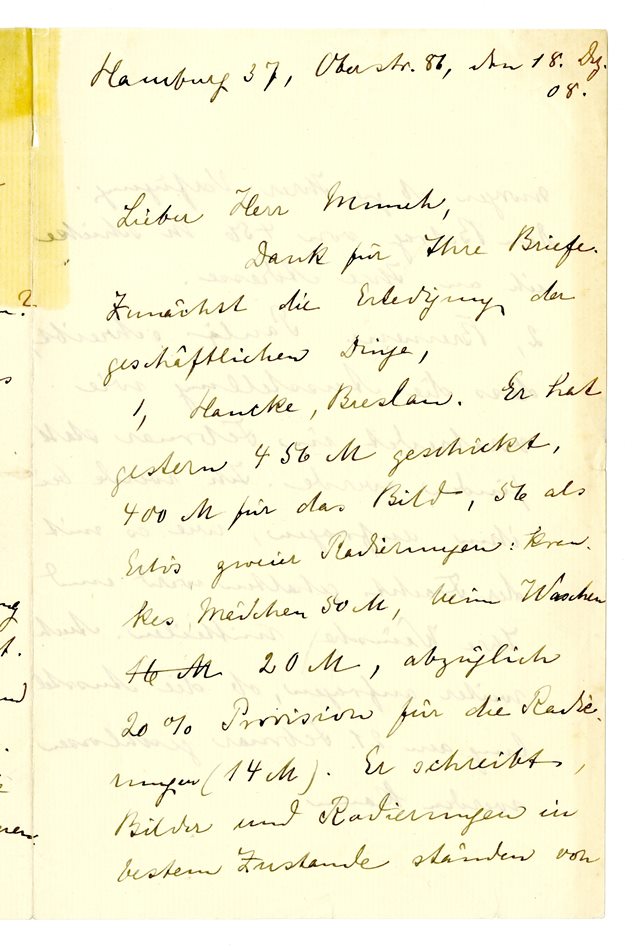 Hamburg 37, Oberstr. 86, den 18. Dez.
08.
Lieber Herr Munch,
Dank für Ihre Briefe.
Zunächst die Erledigung der
geschäftlichen Dinge,
1, Hancke, Breslau. Er hat
gestern 456 M geschickt,
400 M für das Bild, 56 als
Erlös zweier Radierungen: kran-
kes Mädchen 50 M, beim Waschen
16 M 20 M, abzüglich
20 % Provision für die Radie-
rungen (14 M). Er schreibt,
Bilder und Radierungen in
bestem Zustande ständen von